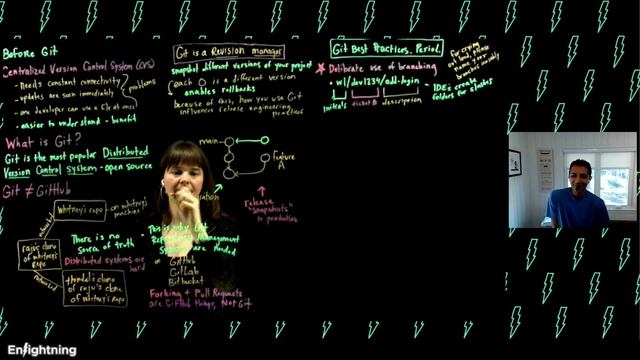 Before Git
Centralized Version Control System (CVS)
- Needs constant connectivity
- updates are seen immediately
- one developer can use a file at once
problems
- easier to understand - benefit
What is Git?
Git is the most popular Distributed
Version Control System - open source
Git ≠ GitHub
Whitney's repo - on whitney's
machine
networked
raju's clone
of whitney's
Repo
networked
of raju's clone
of whitney's Repo
There is no
source of truth
Distributed systems are
hard
Git is a Revision manager
snapshot different versions of your project
each O is a different version
enables rollbacks
because of this, how you use Git
influences release engineering
practices
main
feature
A
release
"snapshots"
to production
This is why Git
Repository Management
Systems are needed
GitHub
GitLab
Bitbucket
Forking + Pull Requests
are GitHub things, Not Git
Git Best Practices. Period.
Deliberate use of branching
- wl/dev1234/add-login
initials
ticket #
description
- IDEs create
folders for slashes
Enlightning